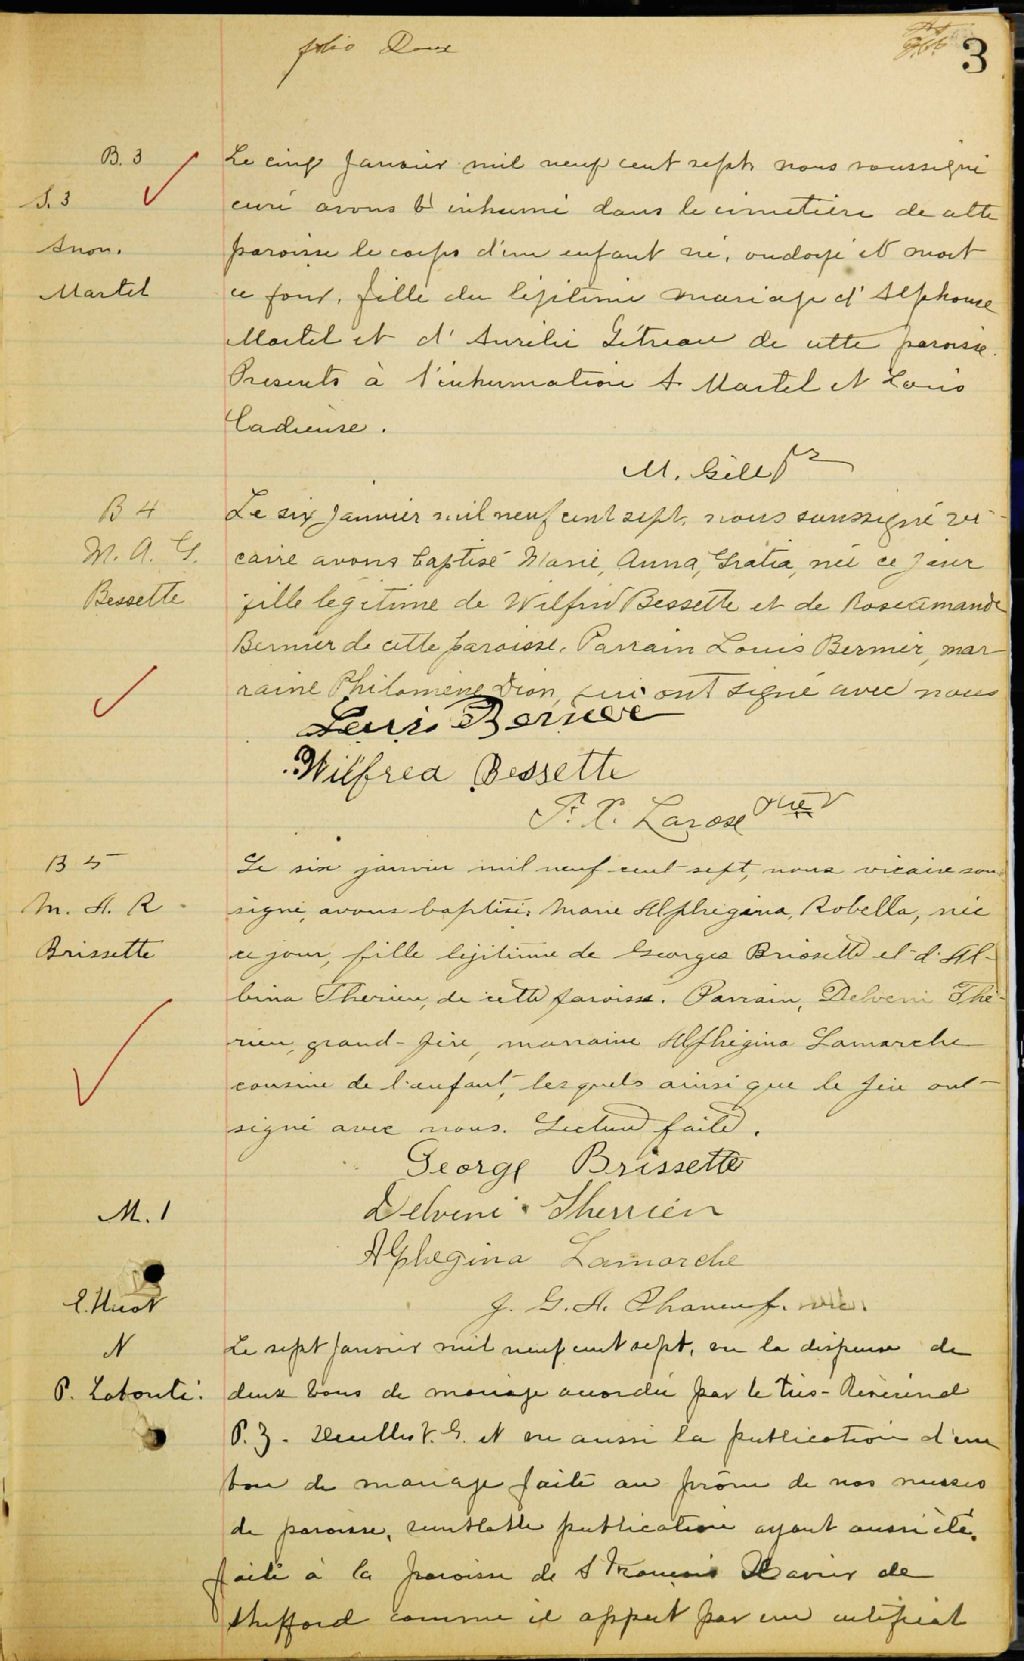 folio Deux
3
B. 3
S. 3
Anon.
Martel
Le cinq Janvier mil neuf cent sept nous soussigné
curé avons inhumé dans le cimetière de cette
paroisse le corps d'un enfant né, ondoyé et mort
ce jour, fille du légitime mariage d'Alphonse
Martel et d'Aurélie Gétreau de cette paroisse.
Présents à l'inhumation A. Martel et Louis
Cadieuse.
M. Gill ptre
B 4
M. A. G.
Bessette
Le six Janvier mil neuf cent sept, nous soussigné vi-
caire avons baptisé Marie, Anna, Gratia, née ce jour
fille légitime de Wilfrid Bessette et de Rose amande
Bernier de cette paroisse. Parrain Louis Bernier, mar-
raine Philomène Dion, qui ont signé avec nous
Louis Bernier
Wilfred Bessette
F. X. Larose
B 5
M. A. R.
Brissette
Le six janvier mil neuf cent sept, nous vicaire sous-
signé, avons baptisé, Marie Alphegina, Robella, née
ce jour, fille légitime de Georges Brissette et d'Al-
bina Therien, de cette paroisse. Parrain, Delveni Thé-
rien, grand-père, marraine Alphégina Lamarche
cousine de l'enfant, lesquels ainsi que le père ont
signé avec nous. Lecture faite.
George Brissette
Delveni Therrien
Alphegina Lamarche
J. G. A. Phaneuf. vic.
M. 1
E. Huot
&
P. Labonté.
Le sept Janvier mil neuf cent sept, vu la dispense de
deux bans de mariage accordée par le très-Révérend
P. Z. V. G. et vu aussi la publication d'un
ban de mariage faite au prône de nos messes
de paroisse, semblable publication ayant aussi été
faite à la paroisse de St François Xavier de
Shefford comme il appert par un certificat